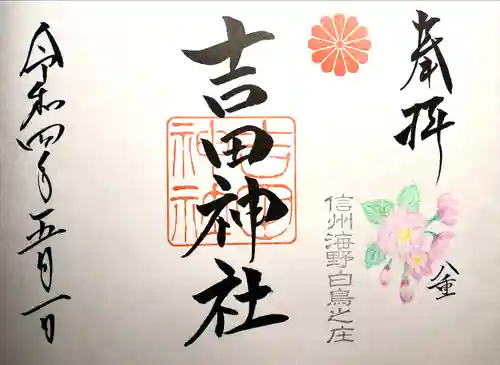 奉拝
八重
信州海野白鳥之庄
吉田神社
吉田
神社
令和四年五月一日